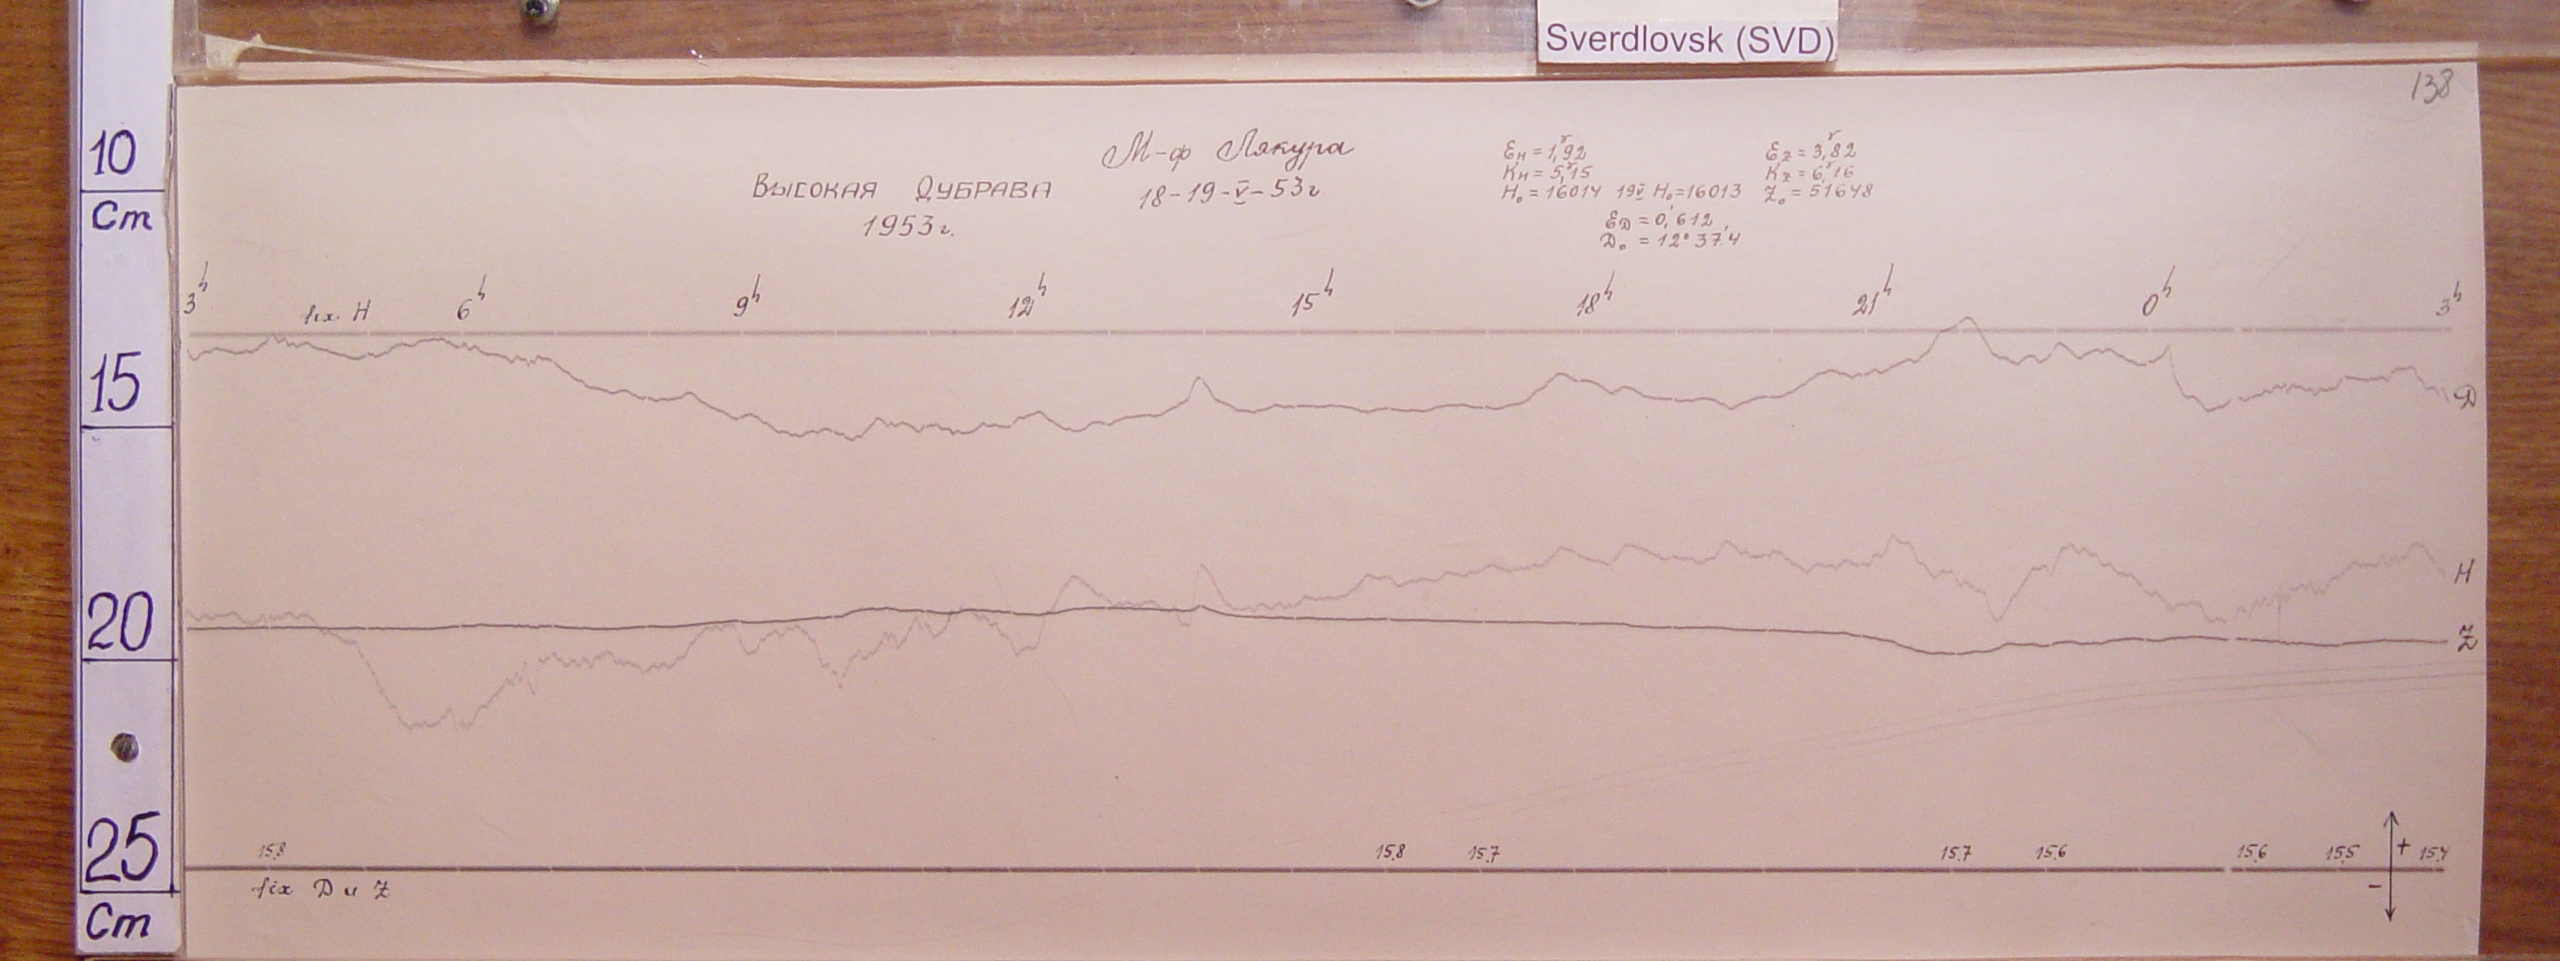 Sverdlovsk (SVD)
138
10
Cm
15
20
25
Cm
М-ф Лякура
18-19-V-53г
ВЫСОКАЯ ДУБРАВА
1953г.
Ɛн = 1,ʳ92
Кн = 5,ʳ15
H₀ = 16014 19V H₀=16013
Ɛz = 3,ʳ82
Kz = 6,ʳ16
Z₀ = 51648
ƐD = 0,′612
D₀ = 12°37,′4
3ʰ 6ʰ 9ʰ 12ʰ 15ʰ 18ʰ 21ʰ 0ʰ 3ʰ
fix H
D
H
Z
15,8 15,8 15,7 15,7 15,6 15,6 15,5 15,4
+
-
fix D и Z